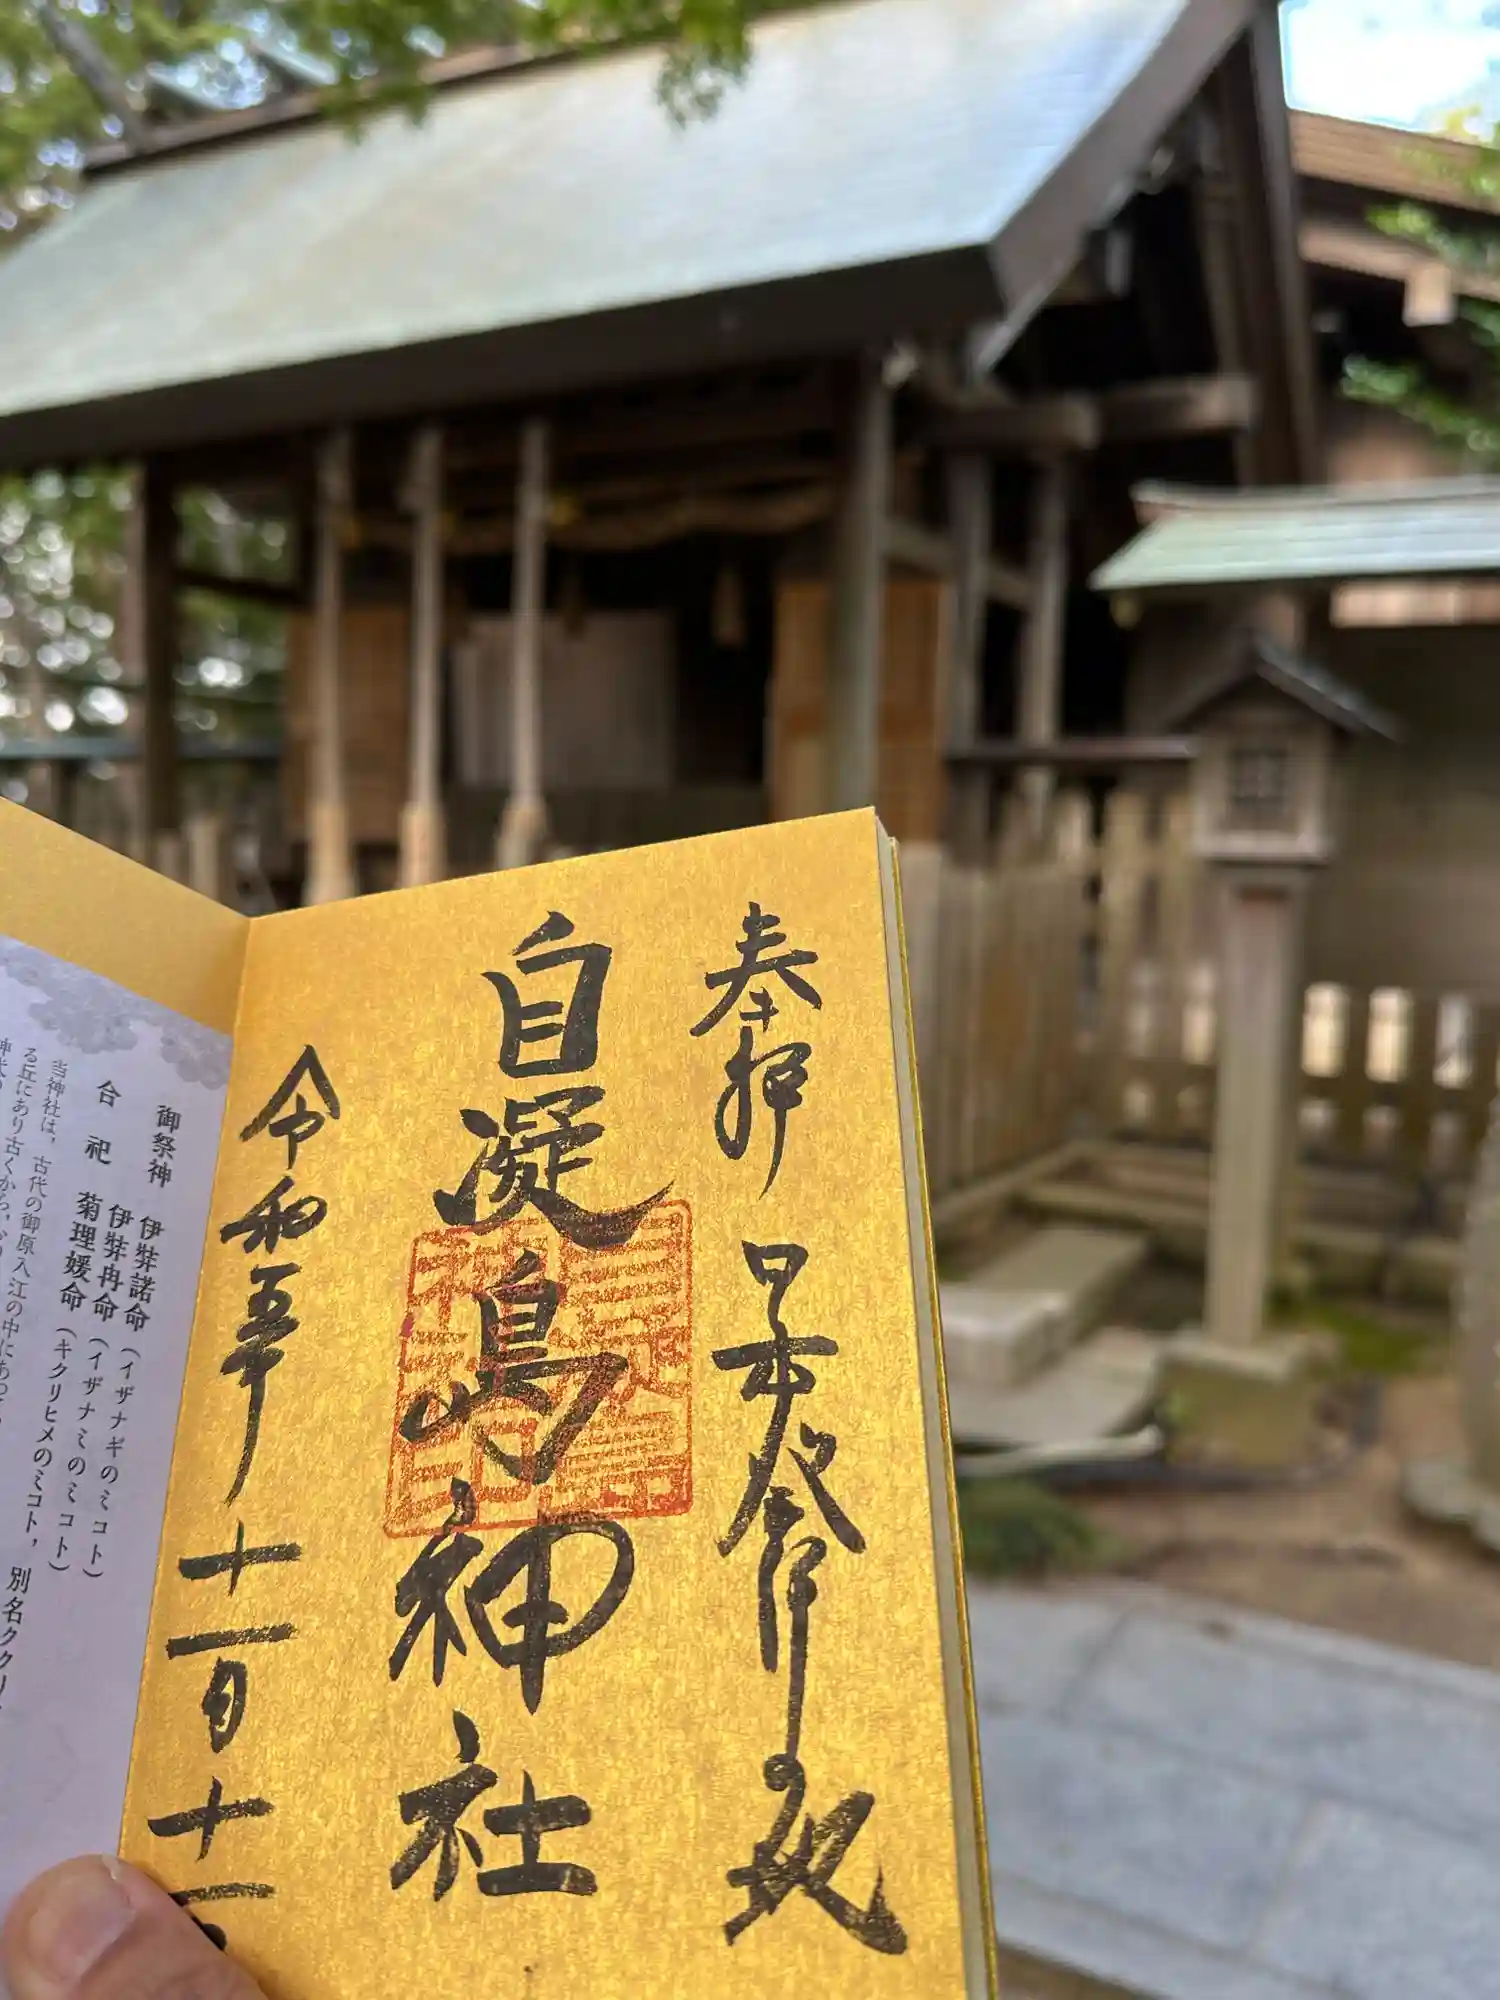 奉拝 日本発祥地
自凝島神社
令和五年十一月十一日
御祭神 伊弉諾命(イザナギのミコト)
伊弉冉命(イザナミのミコト)
合祀 菊理媛命(キクリヒメのミコト,別名ククリ
当神社は,古代の御原入江の中にあっ
る丘にあり古くから,